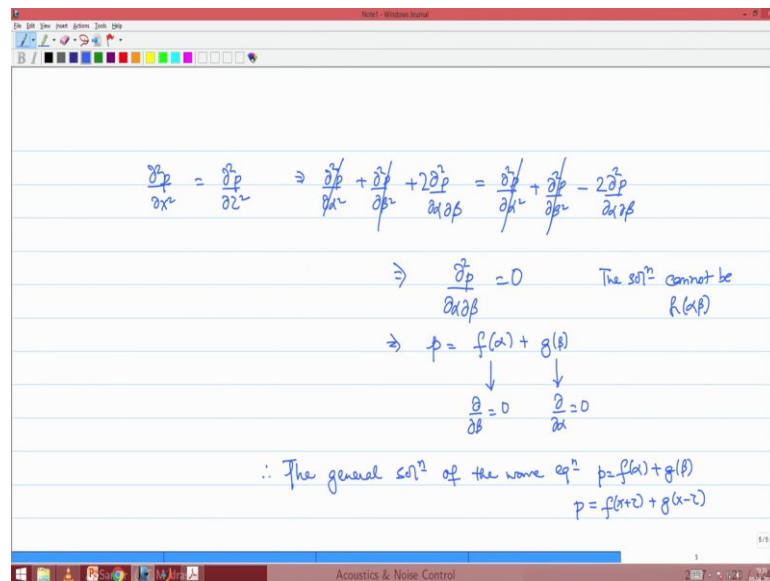 Note1 - Windows Journal
File Edit View Insert Actions Tools Help
B I
∂²p/∂x² = ∂²p/∂z² ⇒ ∂²p/∂α² + ∂²p/∂β² + 2∂²p/∂α∂β = ∂²p/∂α² + ∂²p/∂β² - 2∂²p/∂α∂β
⇒ ∂²p/∂α∂β = 0 The solⁿ cannot be
h(αβ)
⇒ p = f(α) + g(β)
↓ ↓
∂/∂β = 0 ∂/∂α = 0
∴ The general solⁿ of the wave eqⁿ p=f(α)+g(β)
p = f(x+z) + g(x-z)
5/5
5
Acoustics & Noise Control